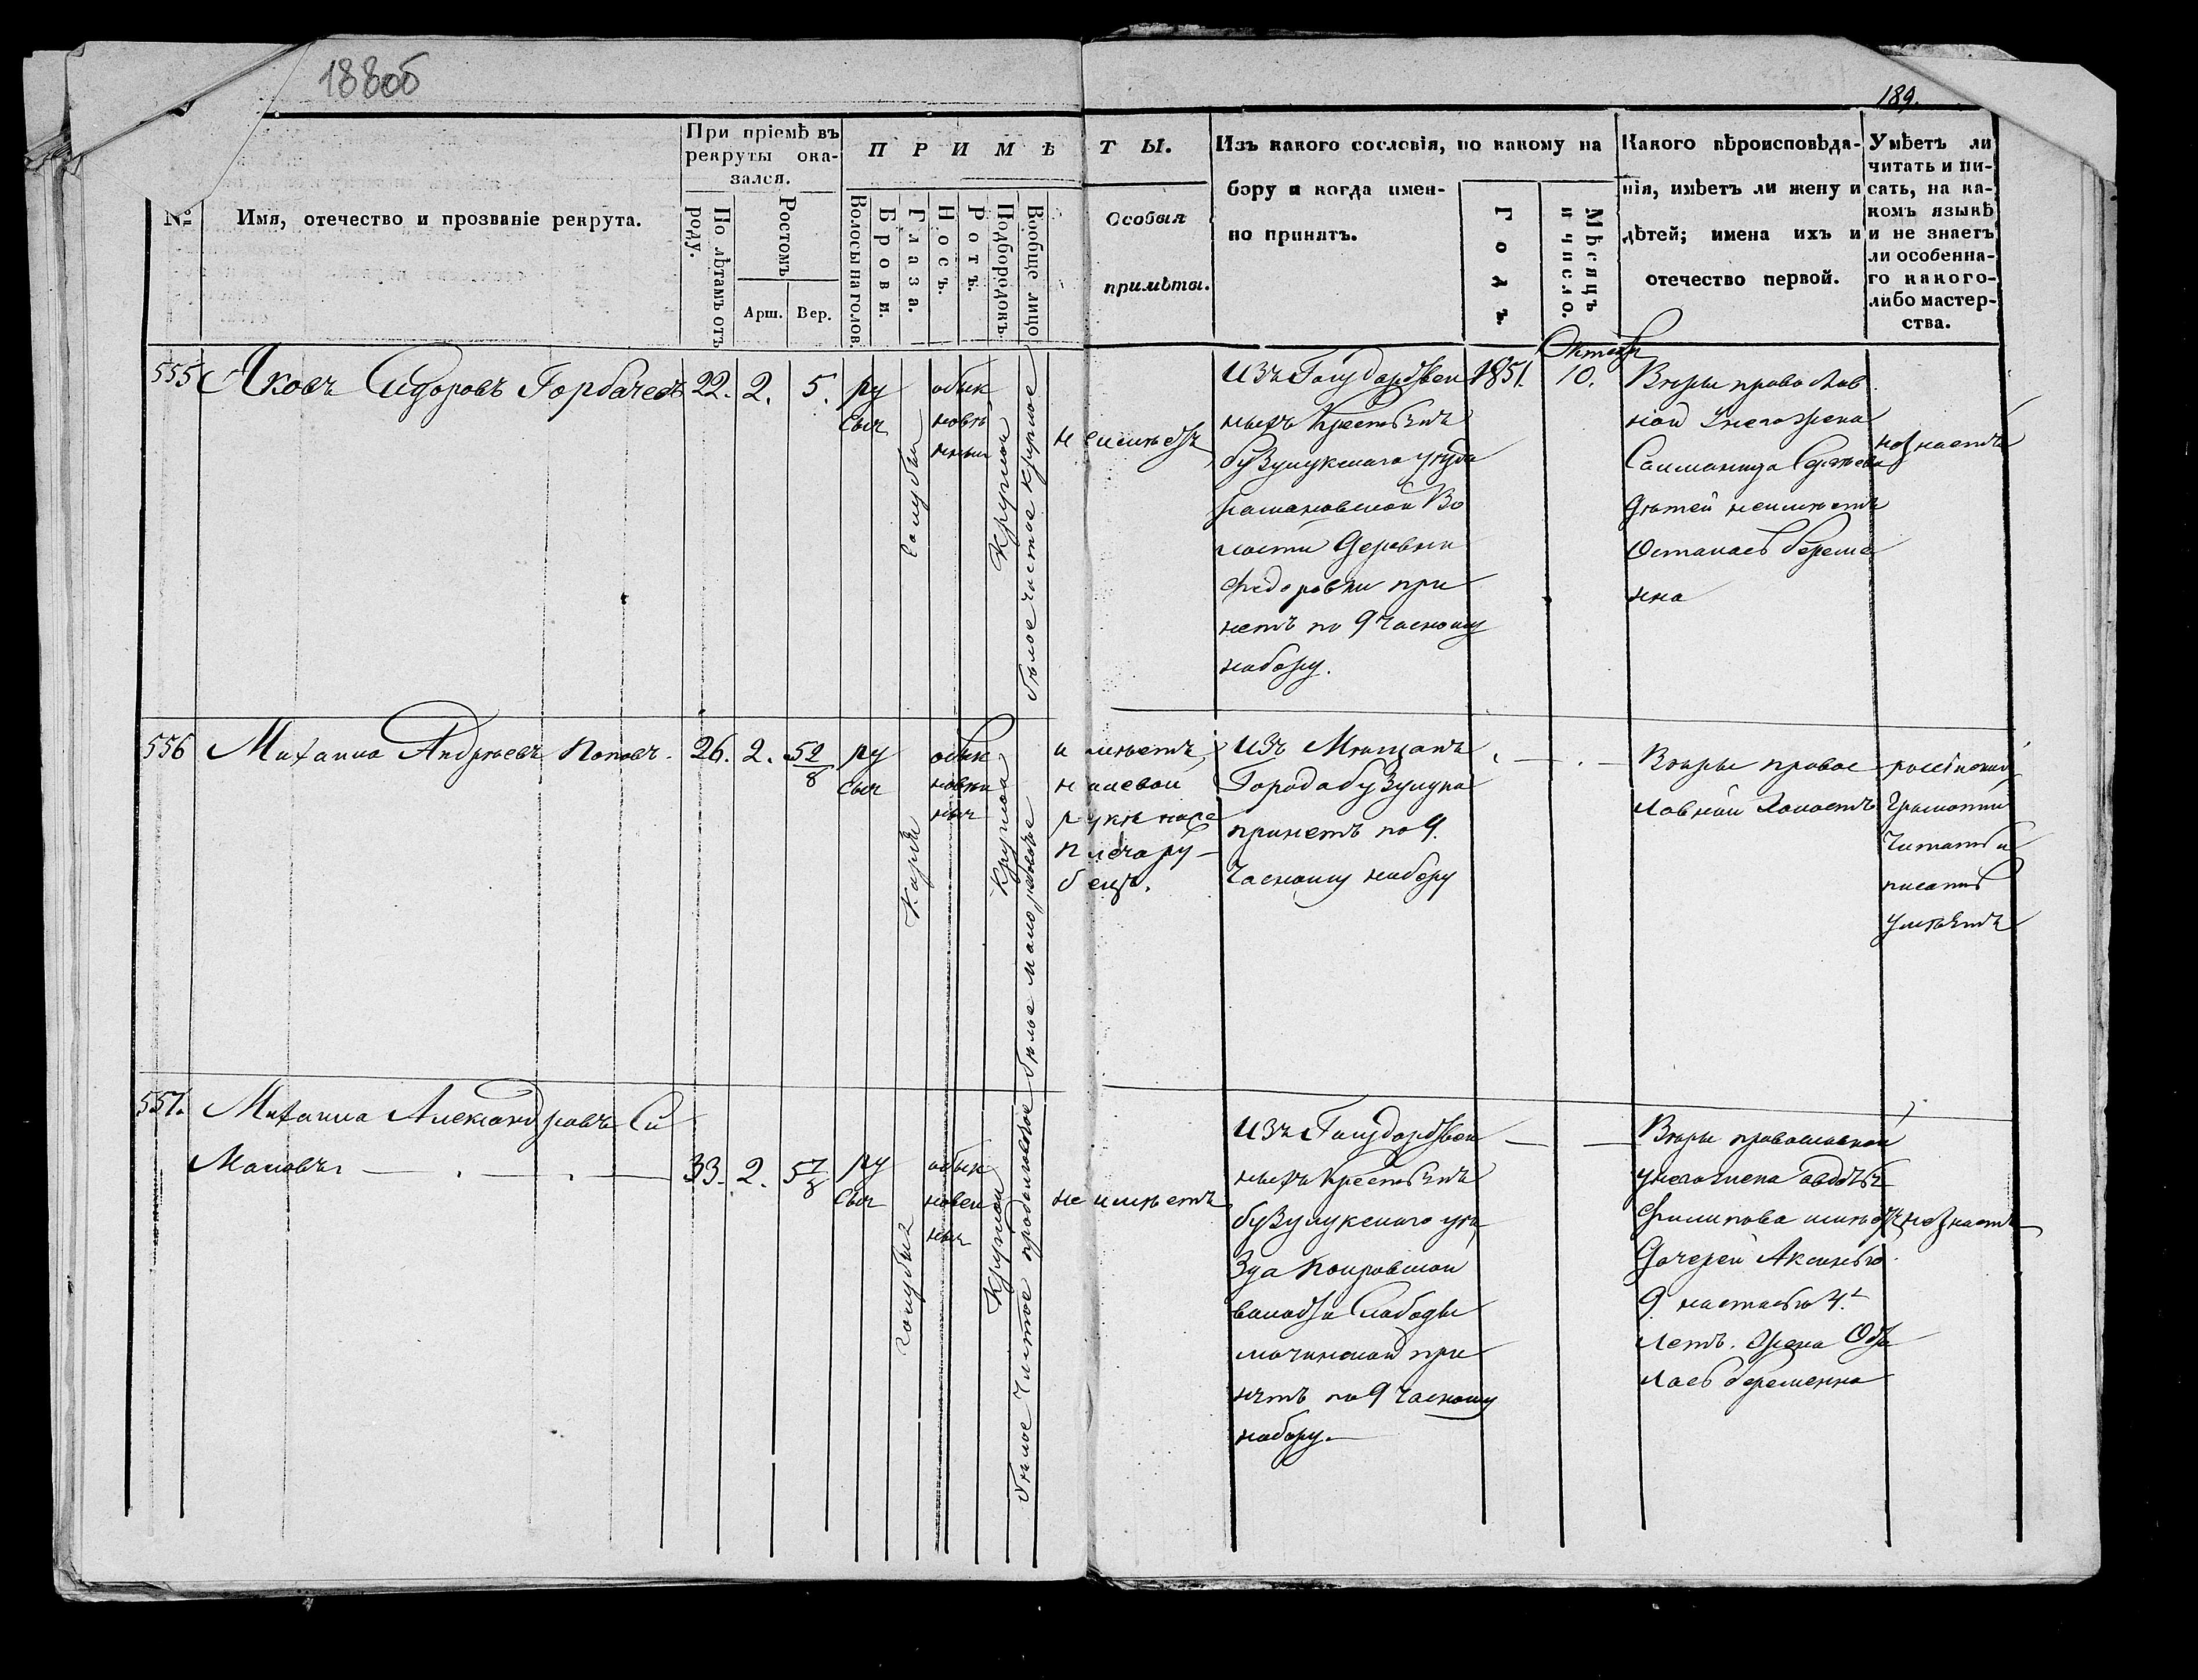 188об
189.
№
Имя, отечество и прозваніе рекрута.
При пріемѣ въ
рекруты ока-
зался.
По лѣтамъ отъ
роду.
Ростомъ
Арш.
Вер.
ПРИМѢТЫ.
Волосы на голов.
Брови.
Глаза.
Носъ.
Ротъ.
Подбородокъ.
Вообще лицо
Особыя
примѣты.
Изъ какого сословія, по какому на
бору и когда имен-
но принятъ.
Годъ.
Мѣсяцъ
и число.
Какого вѣроисповѣда-
нія, имѣетъ ли жену и
дѣтей; имена ихъ и
отечество первой.
Умѣетъ ли
читать и пи-
сать, на ка-
комъ языкѣ
и не знаетъ
ли особенна-
го какого-
либо мастер-
ства.
555 Яковъ Сидоровъ Горбачевъ 22. 2. 5.
ру
сыя
голубыя
обык
новѣ
нныи
круглой
бѣлое чистое круглое
не имѣетъ
Изъ Государствен
ныхъ Крестьянъ
бузулукскаго уѣзда
Во
лости Деревни
Федоровки при
нетъ по 9 часному
набору.
1851.
Октября
10.
Вѣры православ
ной Унего жена
дѣтей неимѣетъ
Осталась береме
нна
незнаетъ
556 Михаила Андрѣевъ Поповъ. 26. 2. 5 2/8
ру
сыя
карія
обык
новен
ныя
круглой
бѣлое мало рябовое
имѣетъ
на левой
рукѣ
плеча ру-
бецъ.
Изъ Мѣщанъ
Города бузулука
принетъ по 9.
часному набору
Вѣры правос
лавной Холостъ
россійской
Грамотѣй
Читать и
писать
умѣетъ
557. Михаила Александровъ Си
Мановъ 33. 2. 5 7/8
ру
сыя
голубыя
обык
новен
ныя
круглой
бѣлое чистое продолговатое
не имѣетъ
Изъ Государствен
ныхъ Крестьянъ
бузулукскаго уѣ
зда Покровской
волости Слободы
при
нетъ по 9 часному
набору.
Вѣры православной
унего жена авдотья
Филипова имѣетъ
Дочерей Аксинью
9 настасью 4.
летъ. Жена Оста
лась беременна
незнаетъ